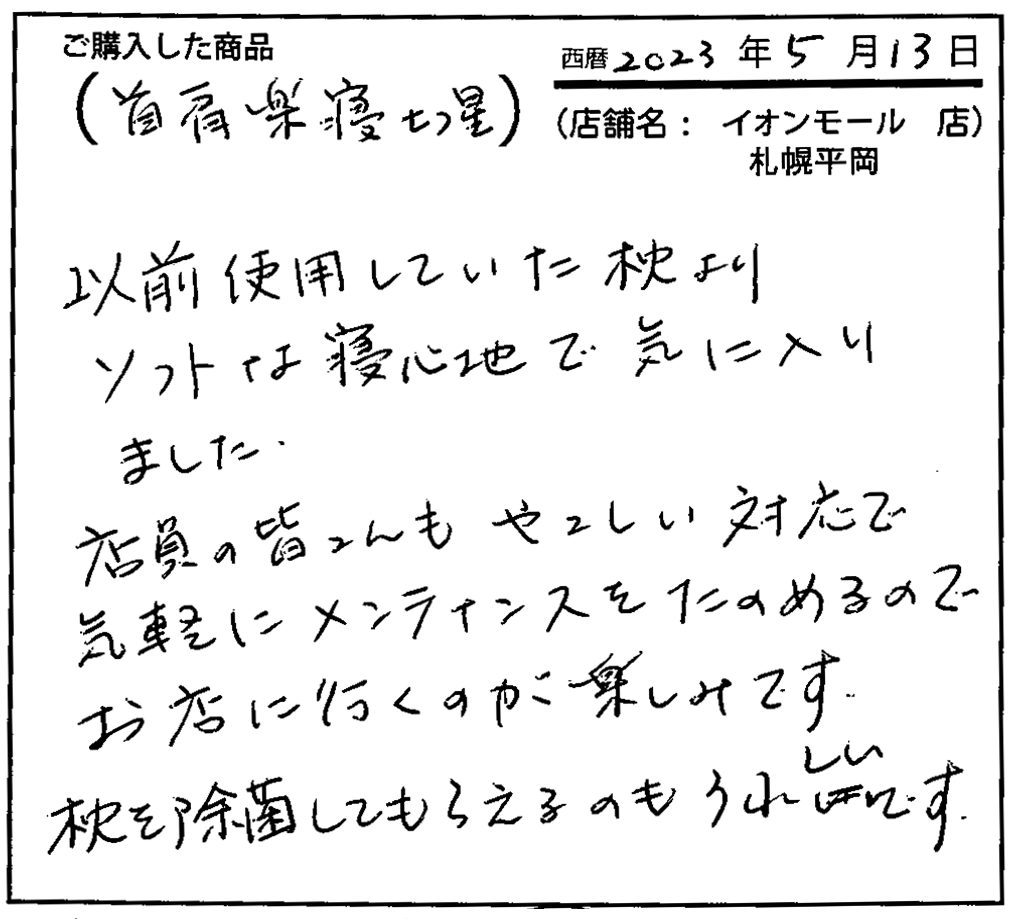 ご購入した商品
西暦 2023 年 5 月 13 日
(首肩楽寝七つ星)
(店舗名： イオンモール 店)
札幌平岡
以前使用していた枕より
ソフトな寝心地で気に入り
ました.
店員の皆さんも やさしい対応で
気軽にメンテナンスをたのめるので
お店に行くのが楽しみです.
枕を除菌してもらえるのもうれしいです.